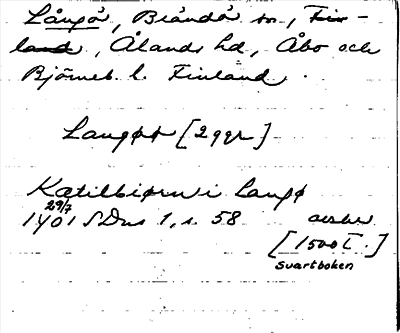 Långö, Brändö sn, Fin-
land, Ålands hd, Åbo och
Björneb. l. Finland.
Langøø [2 ggr]
Kætilbiørn i Langø
29/7
1401 SDns 1, s. 58 avskr
[1500 T.]
Svartboken